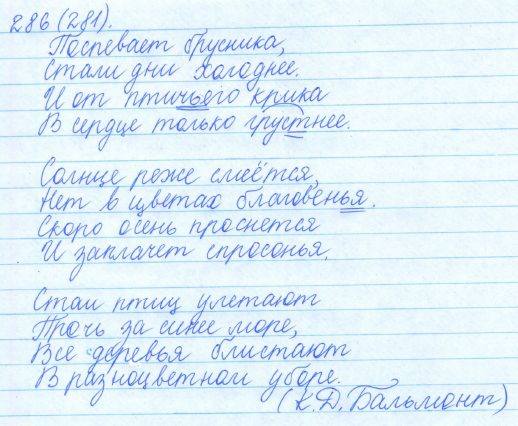 286 (281).
Поспевает брусника,
Стали дни холоднее.
И от птичьего крика
В сердце только грустнее.
Солнце реже смеётся,
Нет в цветах благовенья.
Скоро осень проснется
И заплачет спросонья.
Стаи птиц улетают
Прочь за синее море,
Все деревья блистают
В разноцветном уборе.
(К.Д. Бальмонт)